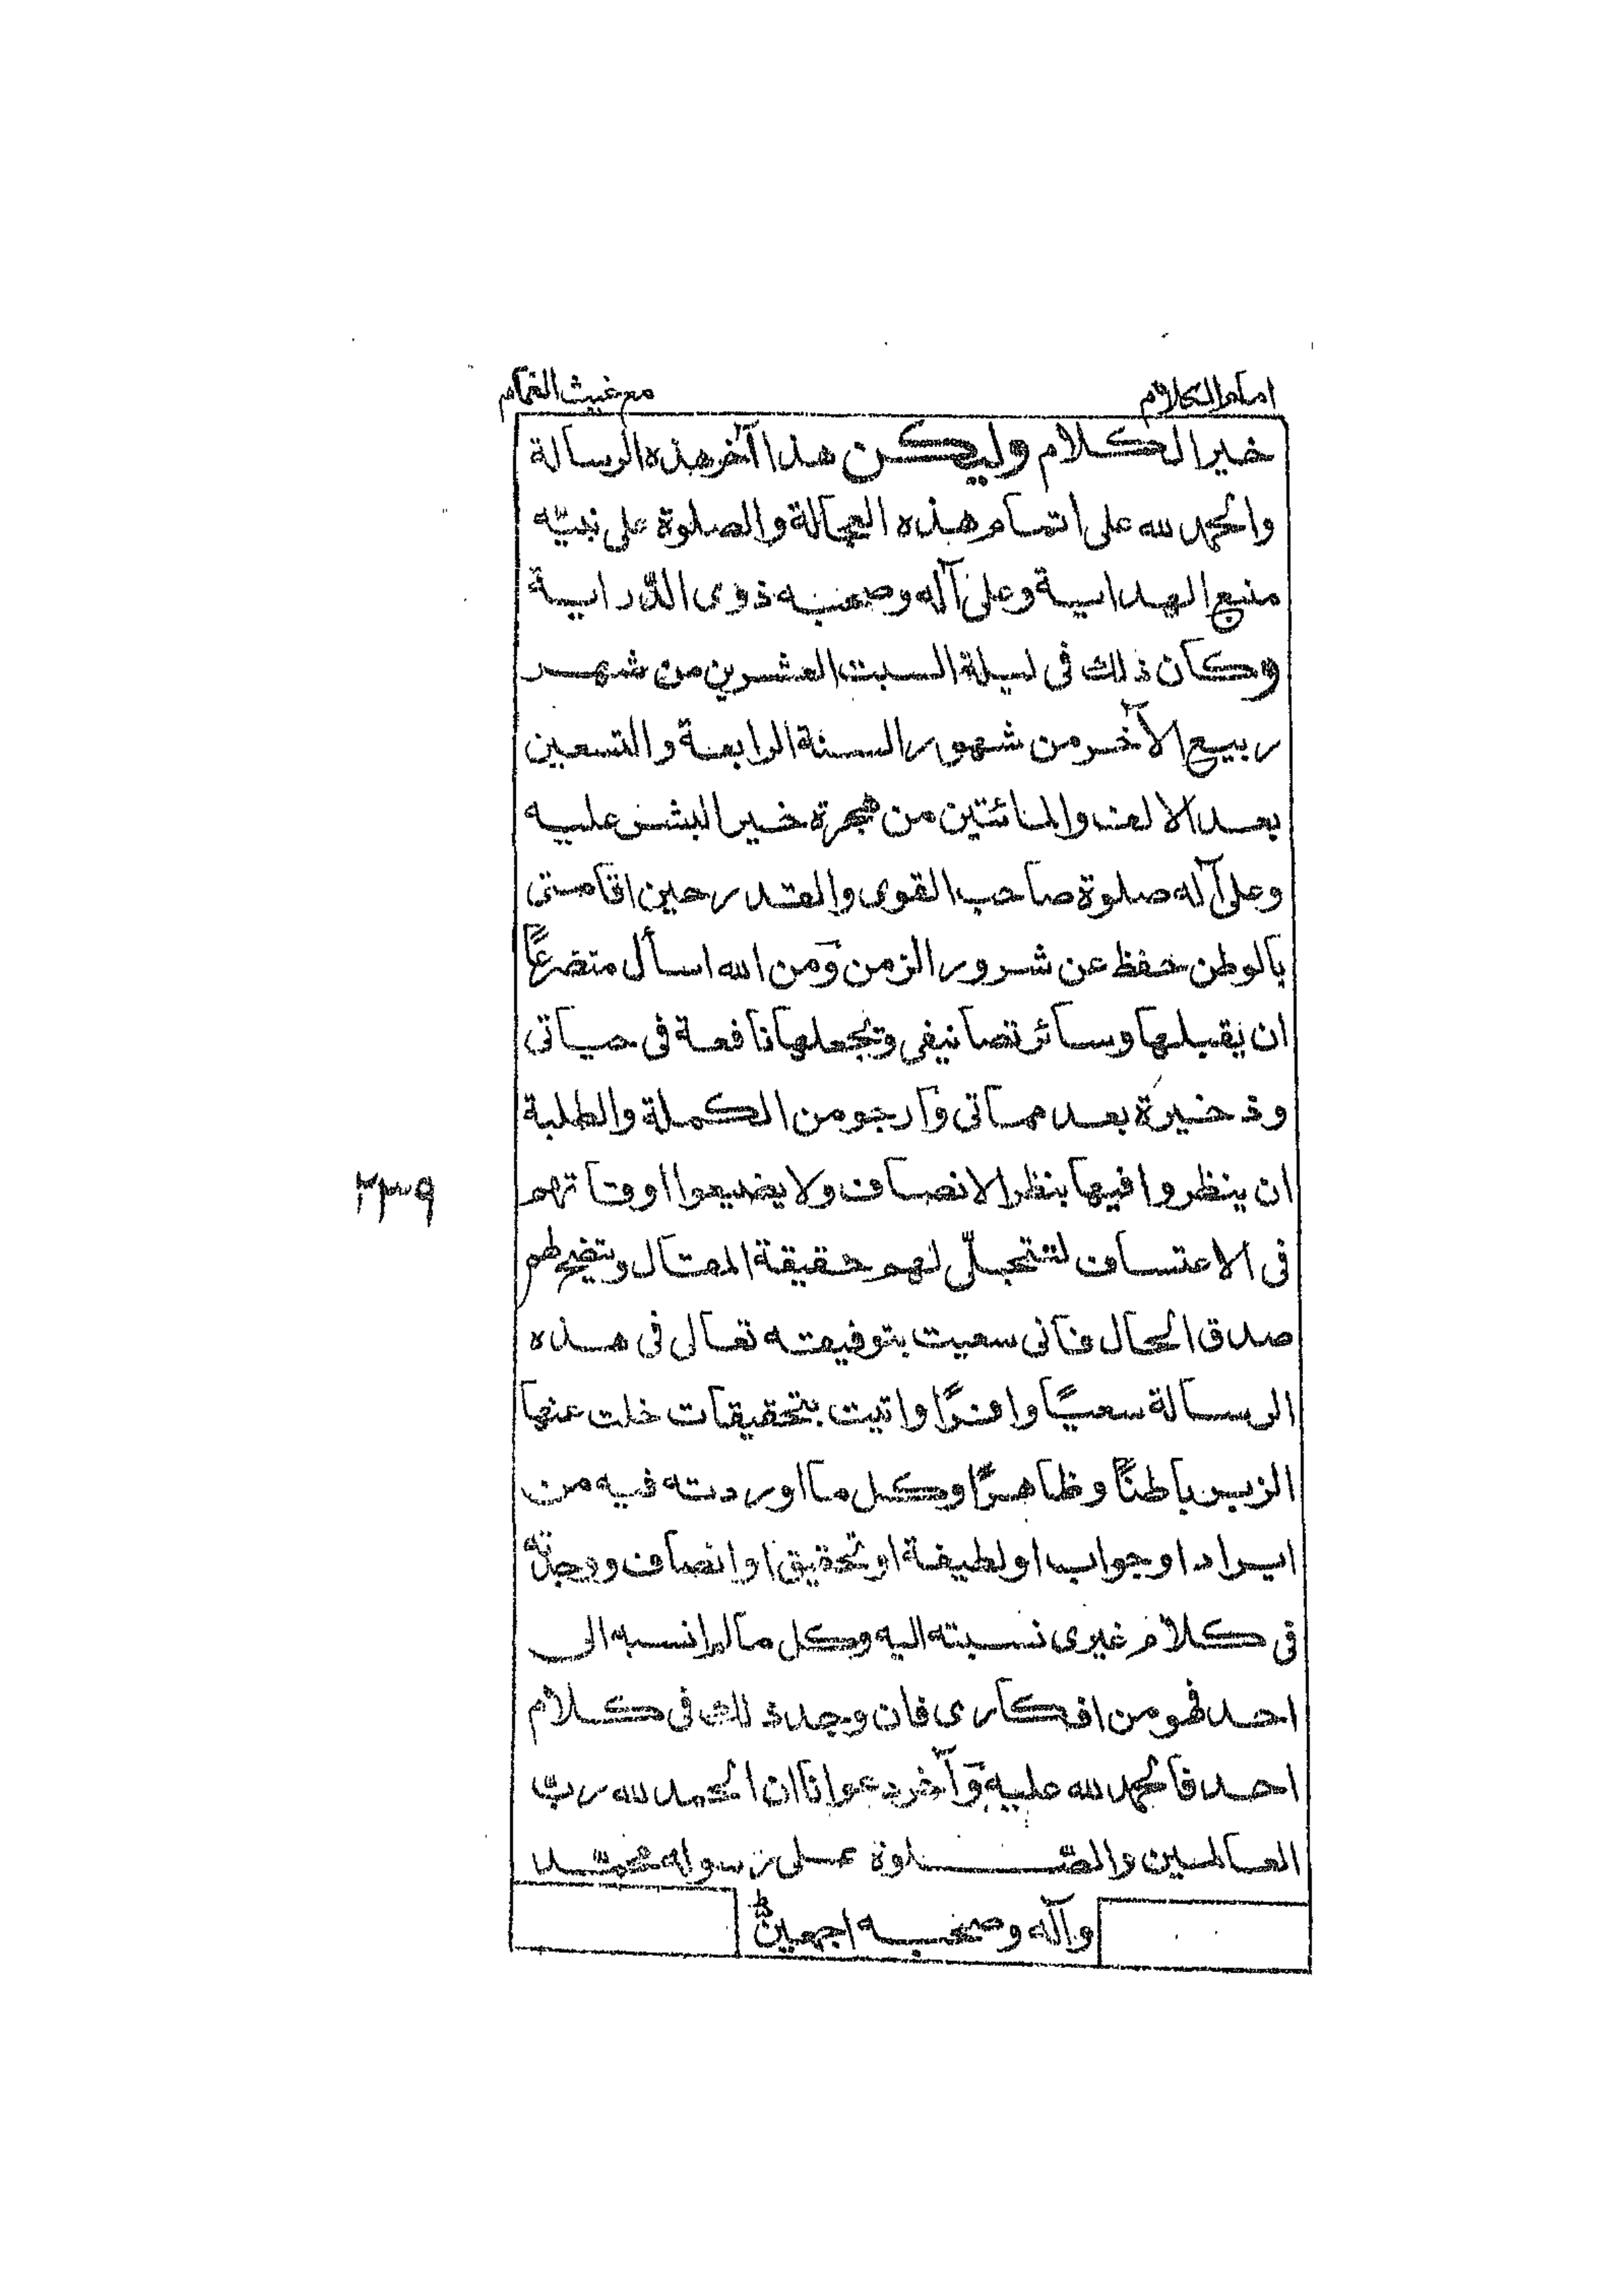 امام الكلام
مع غيث الغمام
خير الكلام وليكن هذا آخر هذه الرسالة
والحمد لله على اتمام هذه العجالة والصلوة على نبيّه
منبع الهداية وعلى آله وصحبه ذوى الدّراية
وكان ذلك فى ليلة السبت العشرين من شهر
ربيع الآخر من شهور السنة الرابعة والتسعين
بعد الالف والمائتين من هجرة خير البشر عليه
وعلى آله صلوة صاحب القوى والقدر حين اقامتى
بالوطن حفظ عن شرور الزمن ومن الله اسأل متضرعًا
ان يقبلها وسائر تصانيفى ويجعلها نافعة فى حياتى
وذخيرة بعد مماتى وارجو من الكملة والطلبة
ان ينظروا فيها بنظر الانصاف ولا يضيعوا اوقاتهم
فى الاعتساف لتتجلّى لهم حقيقة المقال ويتضح لهم
صدق الحال فانى سعيت بتوفيقه تعالى فى هذه
الرسالة سعيًا وافرًا واتيت بتحقيقات خلت عنها
الزبر باطنًا وظاهرًا وكل ما اوردته فيه من
ايراد او جواب او لطيفة او تحقيق او انصاف ووجدته
فى كلام غيرى نسبته اليه وكل ما لم انسبه الى
احد فهو من افكارى فان وجد ذلك فى كلام
احد فالحمد لله عليه وآخر دعوانا ان الحمد لله ربّ
العالمين والصّلوة على رسوله محمّد
وآله وصحبه اجمعين
٢٣٩